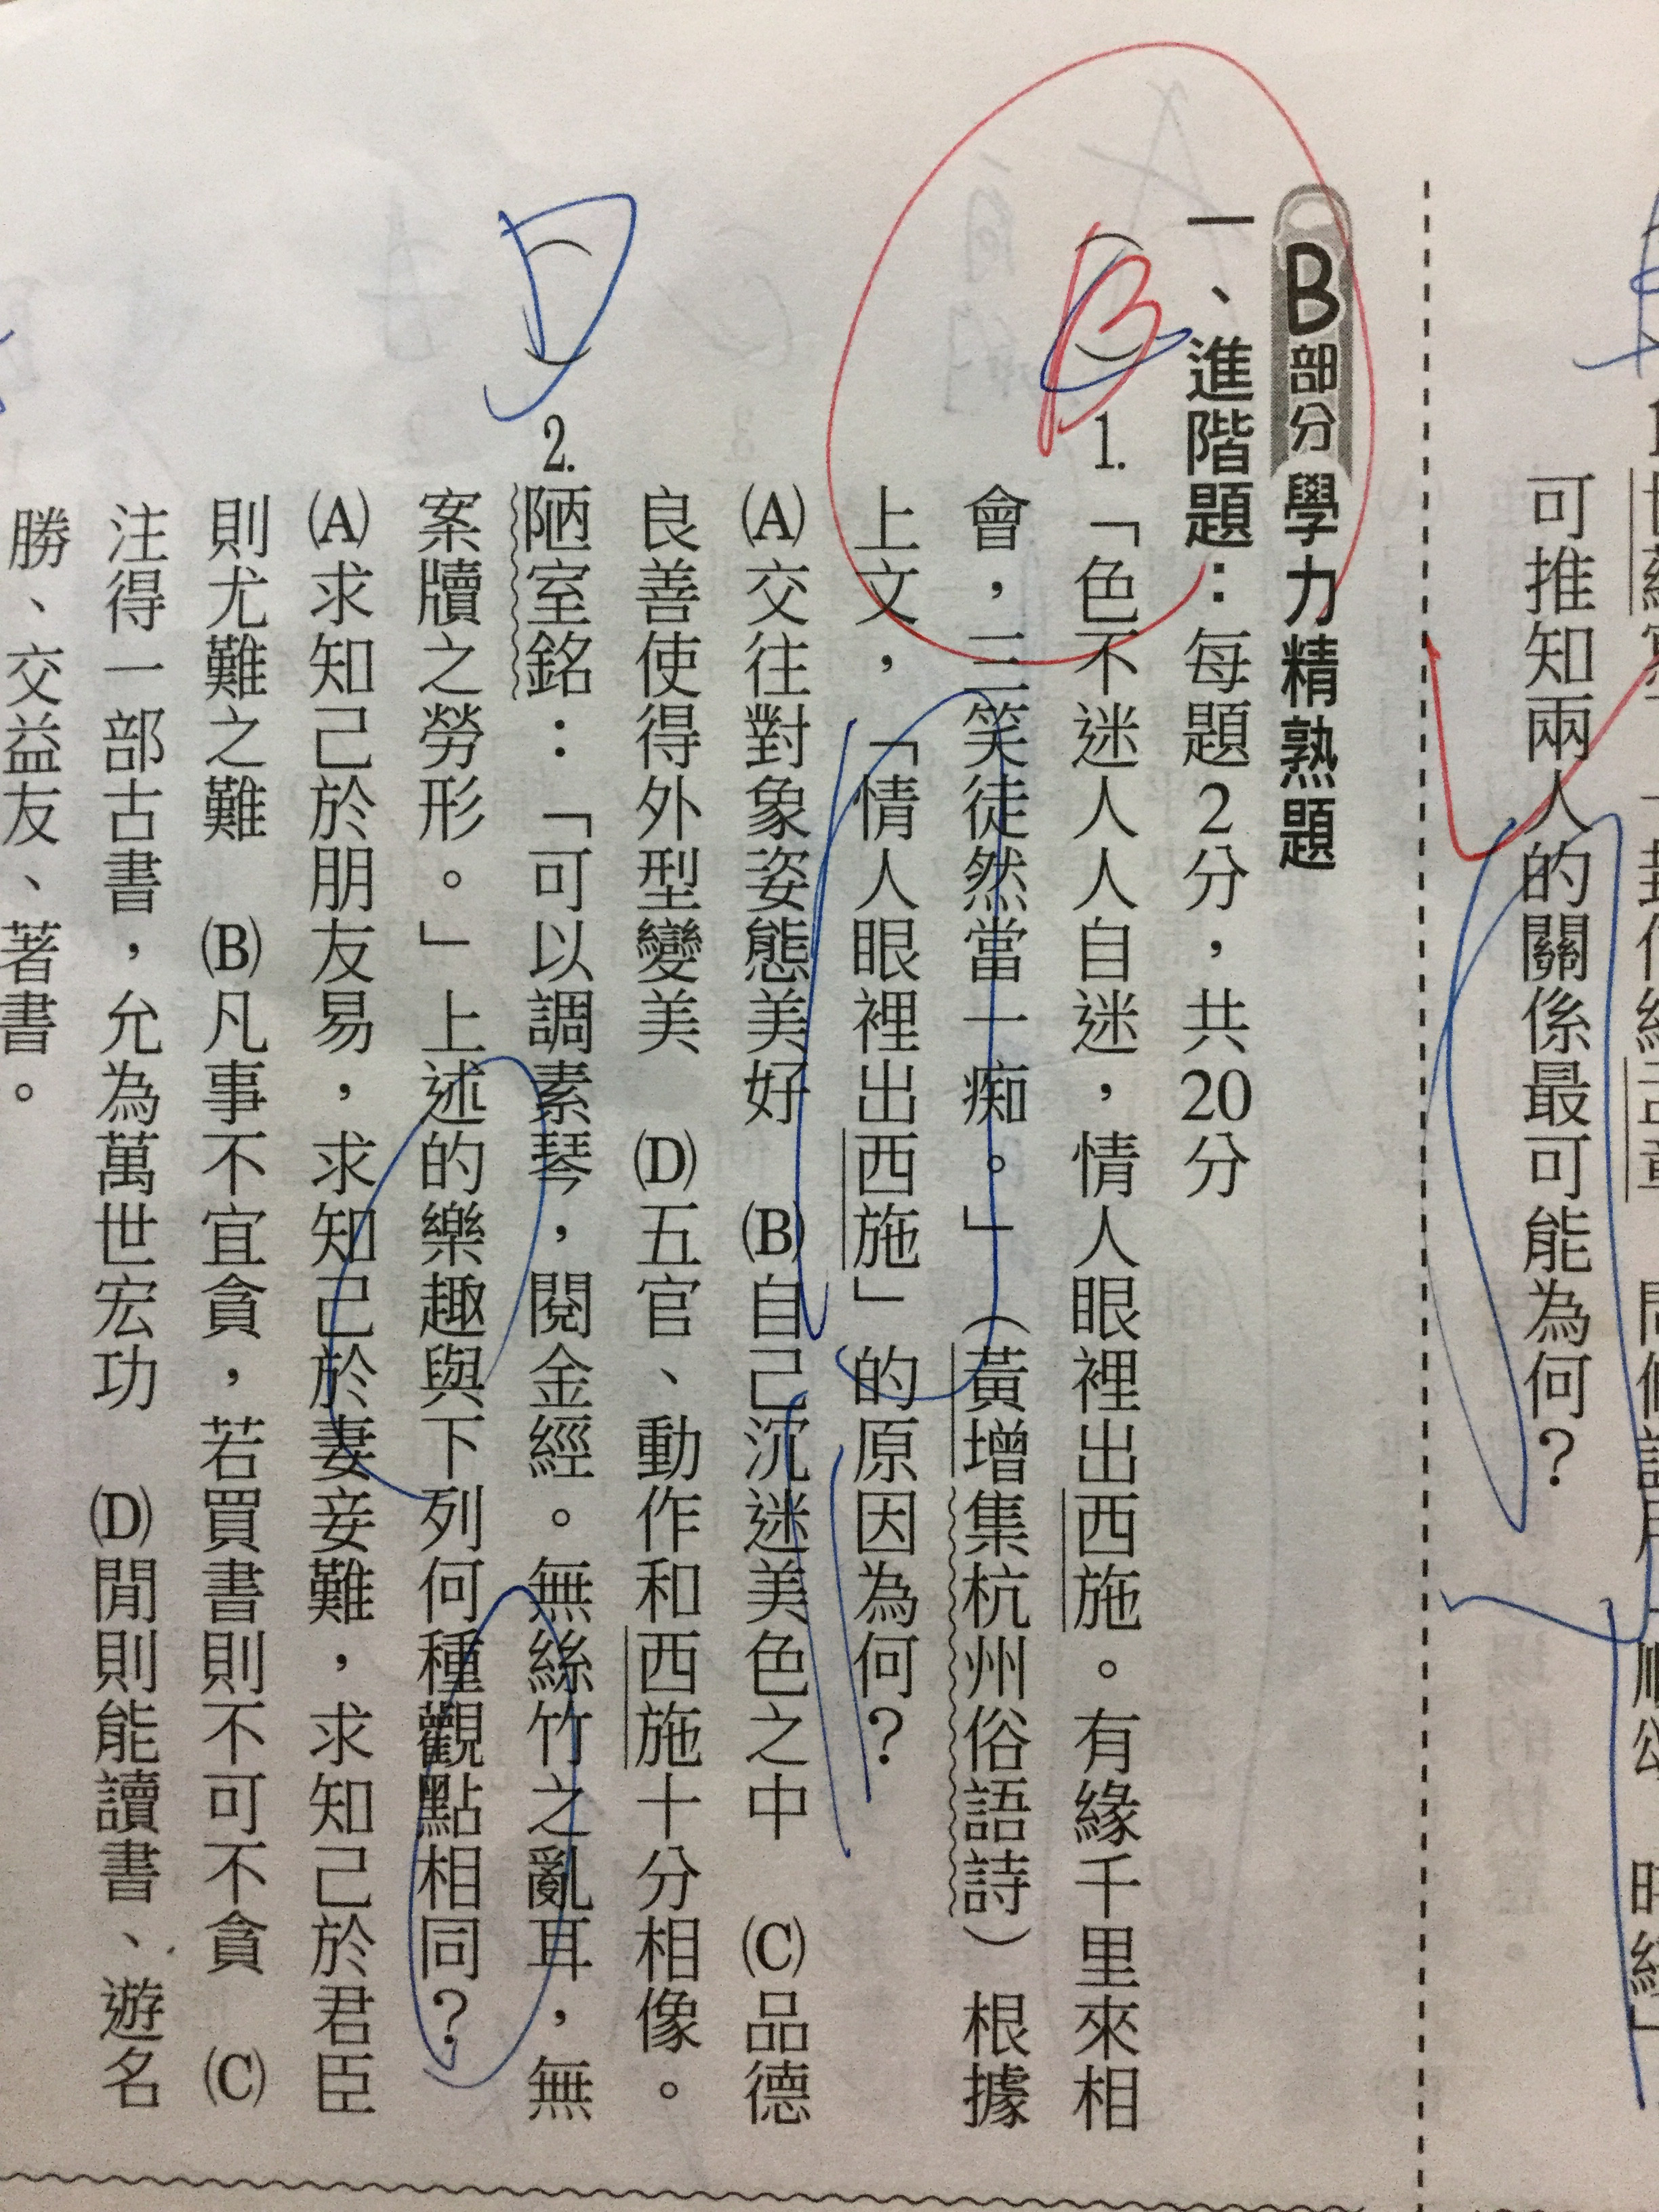 可推知兩人的關係最可能為何？
B部分 學力精熟題
一、進階題：每題2分，共20分
(B) 1.「色不迷人人自迷，情人眼裡出西施。有緣千里來相
會，三笑徒然當一痴。」（黃增集杭州俗語詩）根據
上文，「情人眼裡出西施」的原因為何？
(A)交往對象姿態美好　(B)自己沉迷美色之中　(C)品德
良善使得外型變美　(D)五官、動作和西施十分相像。
(D) 2.陋室銘：「可以調素琴，閱金經。無絲竹之亂耳，無
案牘之勞形。」上述的樂趣與下列何種觀點相同？
(A)求知己於朋友易，求知己於妻妾難，求知己於君臣
則尤難之難　(B)凡事不宜貪，若買書則不可不貪　(C)
注得一部古書，允為萬世宏功　(D)閒則能讀書、遊名
勝、交益友、著書。